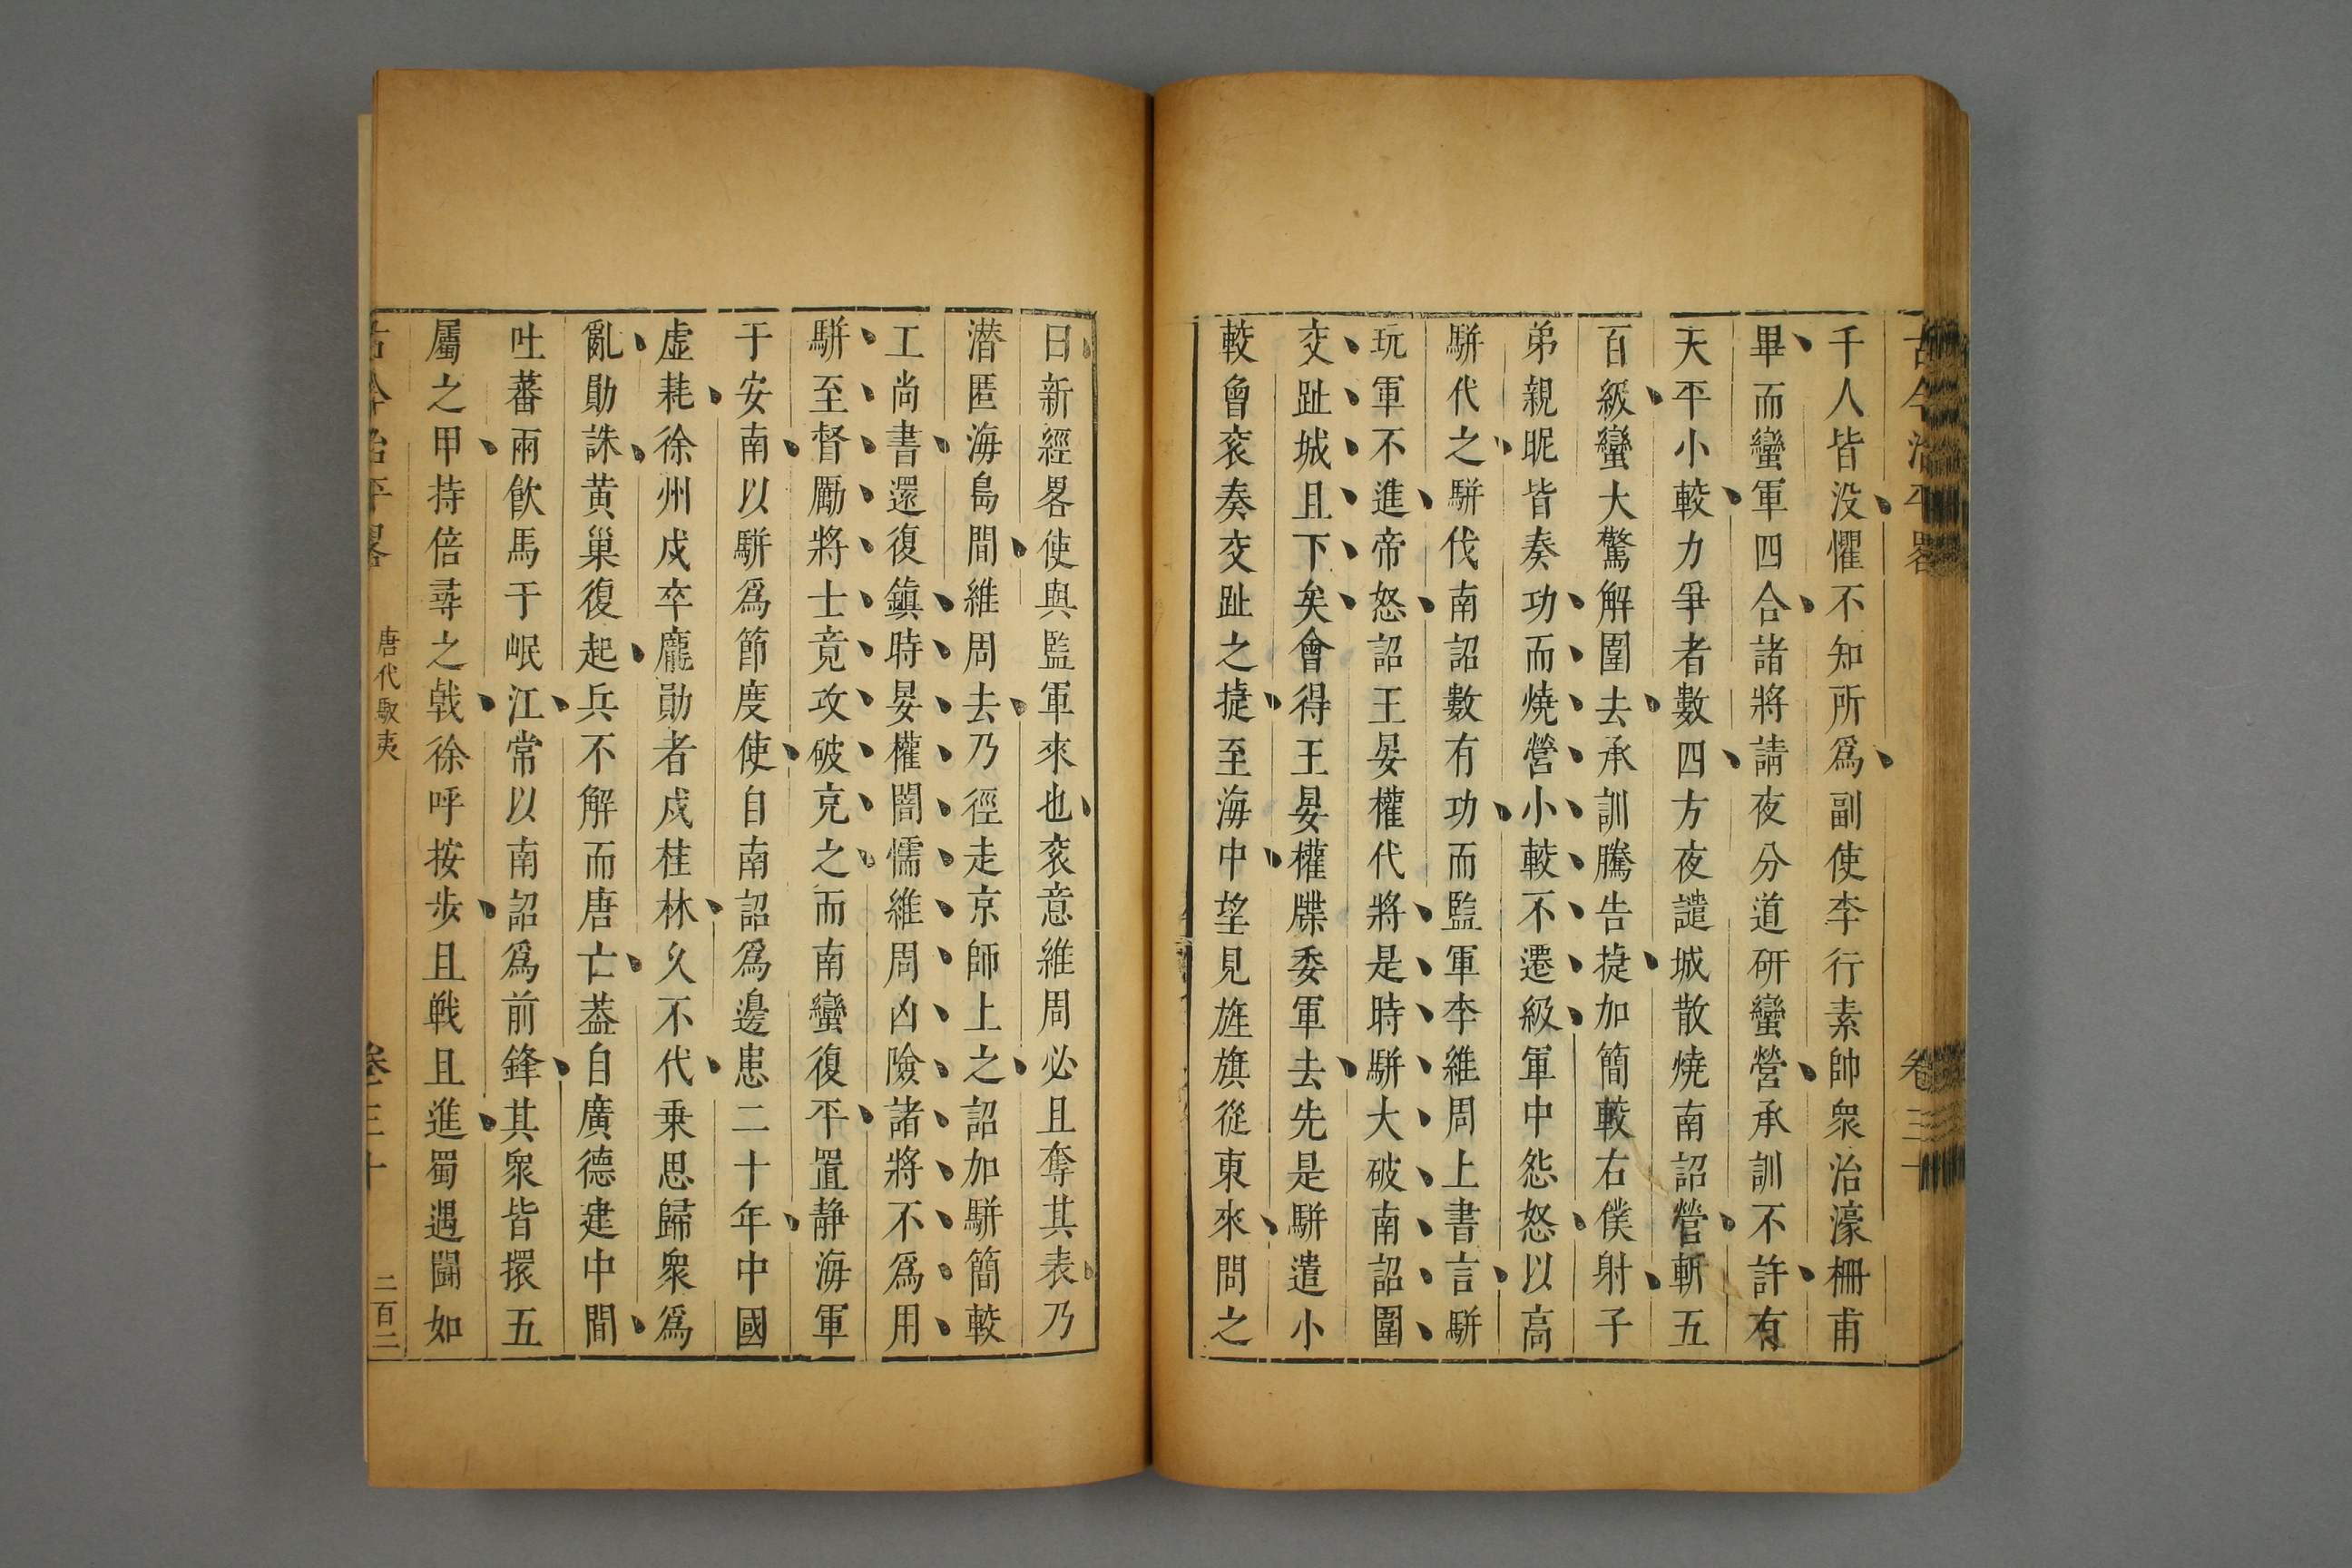 古今治平畧 卷三十
千人皆没懼不知所爲副使李行素帥衆治濠柵甫
畢而蠻軍四合諸將請夜分道研蠻營承訓不許有
天平小較力爭者數四方夜譴城散燒南詔營斬五
百級蠻大驚解圍去承訓騰告捷加簡較右僕射子
弟親昵皆奏功而燒營小較不遷級軍中怨怒以高
駢代之駢伐南詔數有功而監軍李維周上書言駢
玩軍不進帝怒詔王晏權代將是時駢大破南詔圍
交趾城且下矣會得王晏權牒委軍去先是駢遣小
較曾衮奏交趾之捷至海中望見旌旗從東來問之
曰新經畧使與監軍來也衮意維周必且奪其表乃
潜匿海島間維周去乃徑走京師上之詔加駢簡較
工尚書還復鎮時晏權闇懦維周凶險諸將不爲用
駢至督勵將士竟攻破克之而南蠻復平置静海軍
于安南以駢爲節度使自南詔爲邊患二十年中國
虛耗徐州戍卒龐勛者戍桂林久不代乗思歸衆爲
亂勛誅黄巢復起兵不解而唐亡葢自廣德建中間
吐蕃兩飲馬于岷江常以南詔爲前鋒其衆皆擐五
屬之甲持倍尋之戟徐呼按步且戰且進蜀遇鬬如
古今治平畧 唐代馭夷 卷三十 二百二